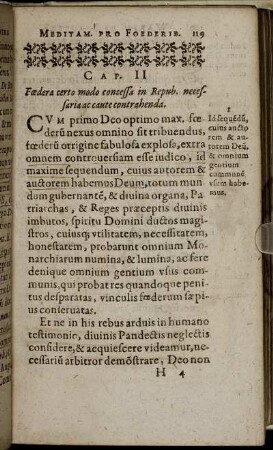 MEDITAM. PRO FOEDERIB. 119
CAP. II
Fœdera certo modo concessa in Repub. neces-
saria ac caute contrahenda.
CVM primo Deo optimo max. fœ-
derũ nexus omnino sit tribuendus,
fœderũ orrigine fabulosa explosa, extra
omnem controuersiam esse iudico, id
maxime sequendum, cuius autorem &
auctorem habemus Deum, totum mun
dum gubernantẽ, & diuina organa, Pa
triarchas, & Reges præceptis diuinis
imbutos, spiritu Domini ductos magi
stros, cuiusq; vtilitatem, necessitatem,
honestatem, probarunt omnium Mo-
narchiarum numina, & lumina, ac fere
denique omnium gentium vsus com-
munis, qui probat res quandoque peni
tus desparatas, vinculis fœderum sæpi
us conseruatas.
Et ne in his rebus arduis in humano
testimonio, diuinis Pandectis neglectis
considere, & acquiescere videamur, ne-
cessariũ arbitror demõstrare, Deo non
H 4
1
Id sequẽdũ,
cuius aucto
rem & au-
totem Deũ,
& omnium
gentium
communẽ
vsum habe-
mus.